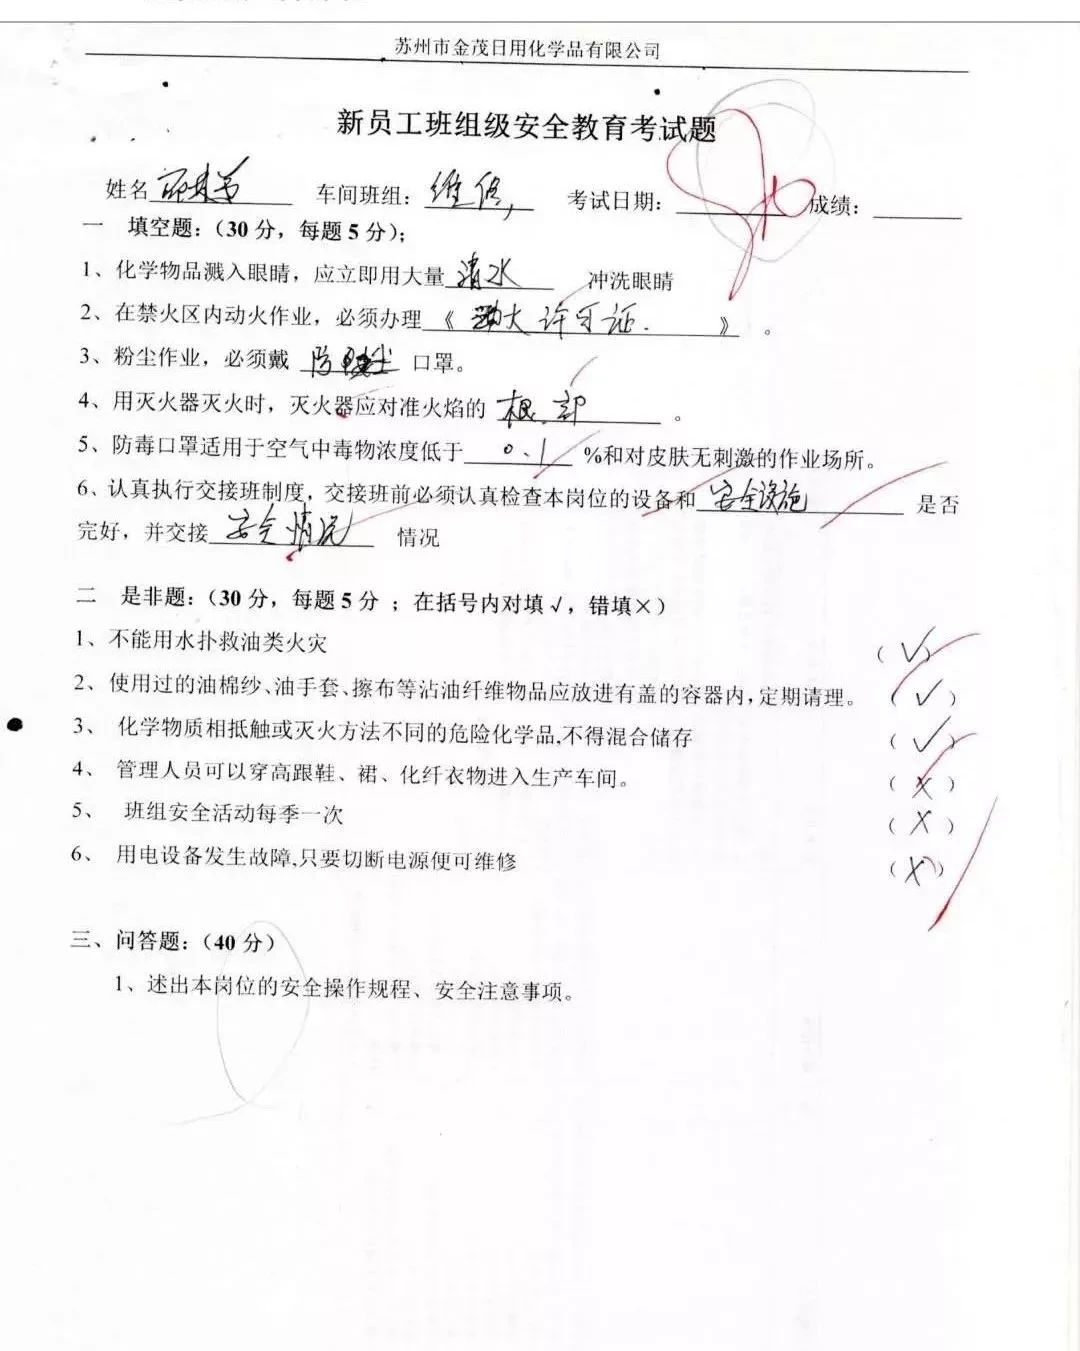 苏州市金茂日用化学品有限公司
新员工班组级安全教育考试题
姓名 车间班组: 维修, 考试日期: 成绩:
一 填空题:(30 分, 每题 5 分);
1、化学物品溅入眼睛，应立即用大量 清水 冲洗眼睛
2、在禁火区内动火作业，必须办理《 动火许可证. 》。
3、粉尘作业，必须戴 防尘 口罩。
4、用灭火器灭火时，灭火器应对准火焰的 根部 。
5、防毒口罩适用于空气中毒物浓度低于 0、1 %和对皮肤无刺激的作业场所。
6、认真执行交接班制度，交接班前必须认真检查本岗位的设备和 安全设施 是否
完好，并交接 安全情况 情况
二 是非题:(30 分，每题 5 分 ；在括号内对填√，错填×)
1、不能用水扑救油类火灾 (√)
2、使用过的油棉纱、油手套、擦布等沾油纤维物品应放进有盖的容器内,定期请理。 (√)
3、 化学物质相抵触或灭火方法不同的危险化学品,不得混合储存 (√)
4、 管理人员可以穿高跟鞋、裙、化纤衣物进入生产车间。 (×)
5、 班组安全活动每季一次 (×)
6、 用电设备发生故障,只要切断电源便可维修 (×)
三、问答题:(40 分)
1、述出本岗位的安全操作规程、安全注意事项。